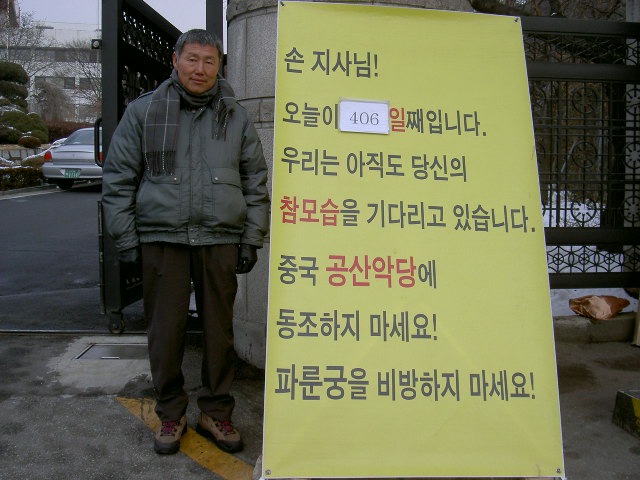 손 지사님!
오늘이 406 일째입니다.
우리는 아직도 당신의
참모습을 기다리고 있습니다.
중국 공산악당에
동조하지 마세요!
파룬궁을 비방하지 마세요!